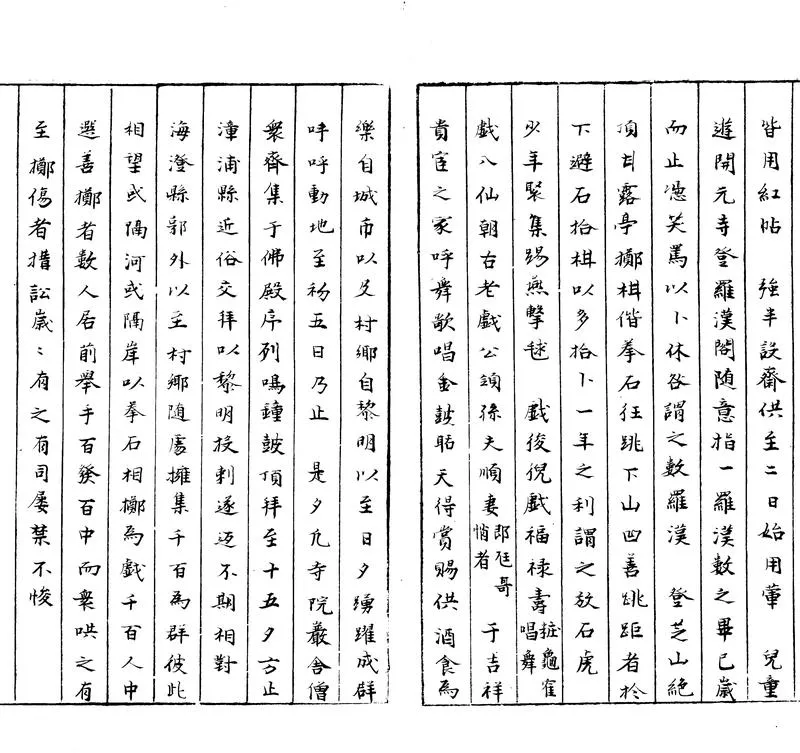 皆用紅帖　強半設齋供至二日始用葷　兒童
遊開元寺登羅漢閣随意指一羅漢数之畢已歲
而止憑笑罵以卜休咎謂之数羅漢　登芝山絶
頂甘露亭擲棋偕拳石狂跳下山四善跳距者於
下避石拾棋以多拾卜一年之利謂之放石虎
少年聚集踢燕擊毬　戯後猊戯福禄壽樁龜窄唱舞
戯八仙朝古老戯公頌孫夫順妻郎尫哥悄者　于吉祥
貴宦之家呼舞歌唱金鼓聒天得賞賜供酒食為
樂自城市以及村鄉自黎明以至日夕踴躍成群
呼呼動地至初五日乃止　是夕凢寺院巖舎僧
衆齊集于佛殿序列鳴鐘鼓頂拜至十五夕方止
漳浦縣近俗交拜以黎明投刺遂迈不期相對
海澄縣郭外以主村鄉随處擁集千百為群彼此
相望或隔河或隔岸以拳石相擲為戯千百人中
選善擲者数人居前舉手百發百中而衆哄之有
至擲傷者搆訟歲〻有之有司屡禁不悛